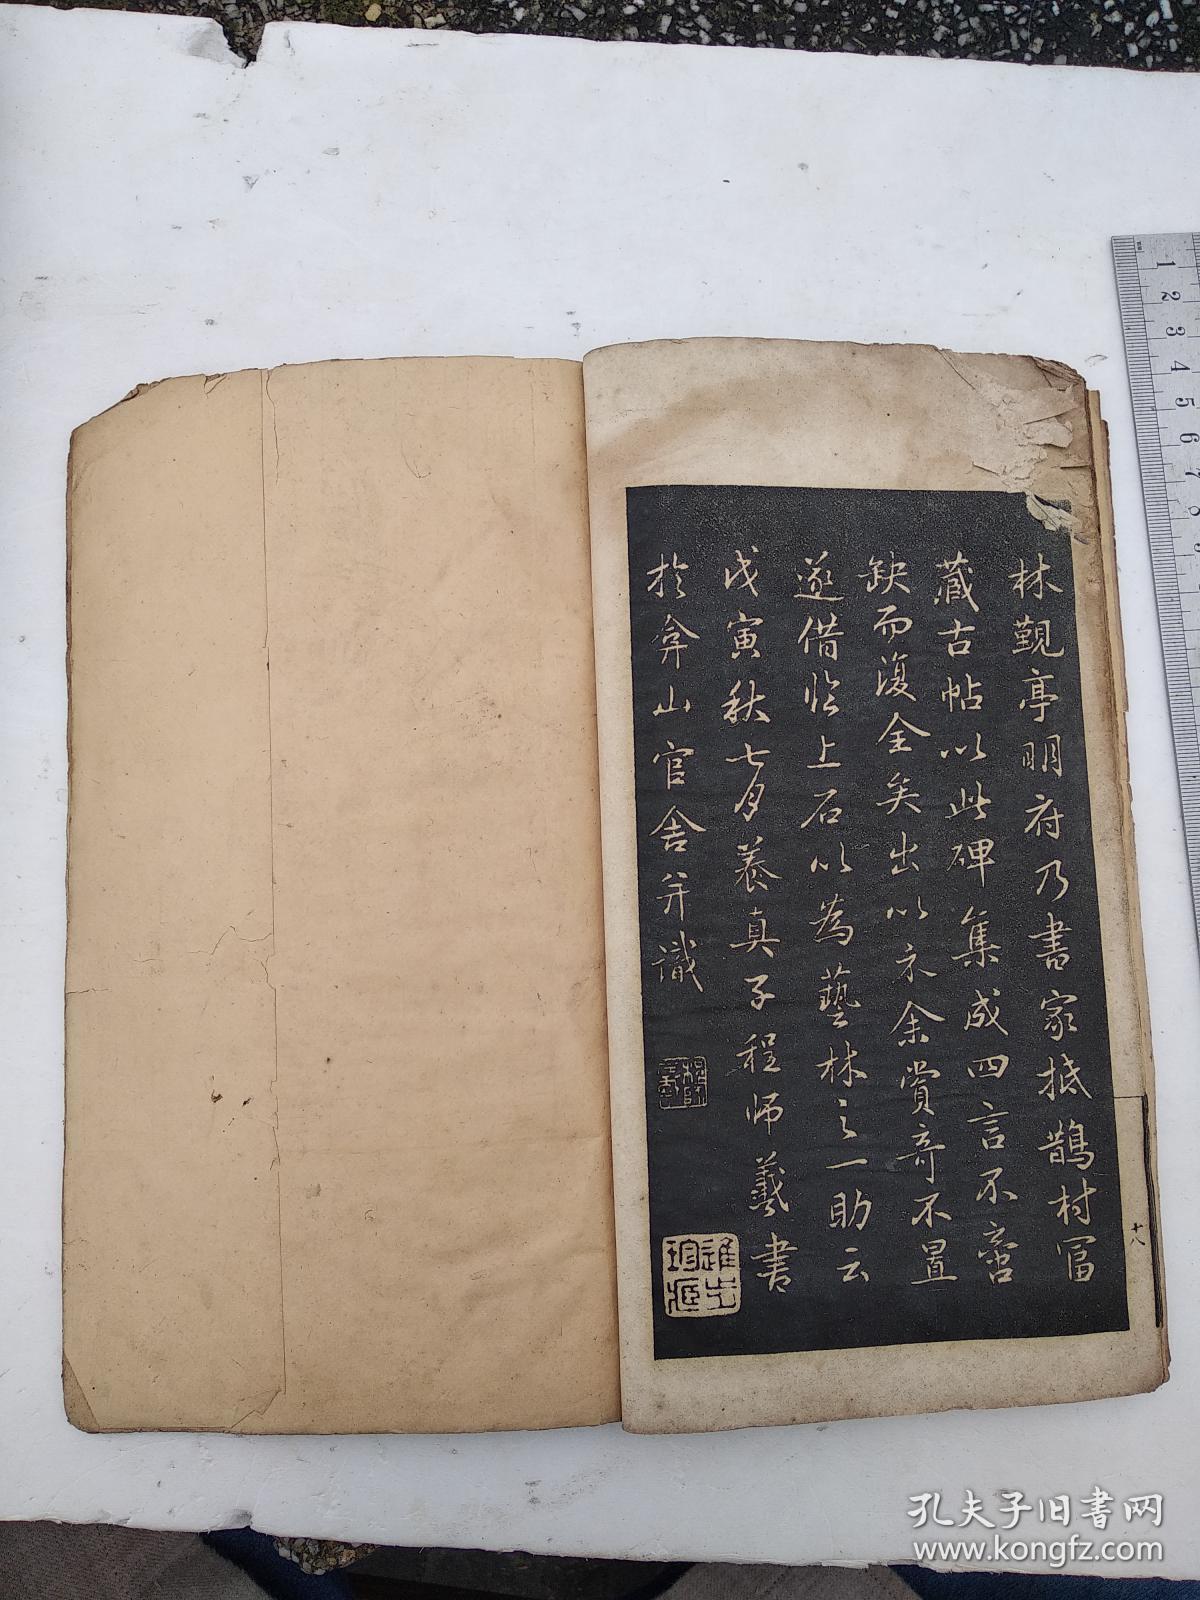 林觐亭明府乃書家抵鵲村冨
藏古帖以此碑集成四言不啻
缺而復全矣出以示余賞奇不置
遂借临上石以為藝林之一助云
戊寅秋七月養真子程師羲書
於弇山官舎并識
十八
1 2 3 4 5 6 7 8 9
孔夫子旧書网
www.kongfz.com